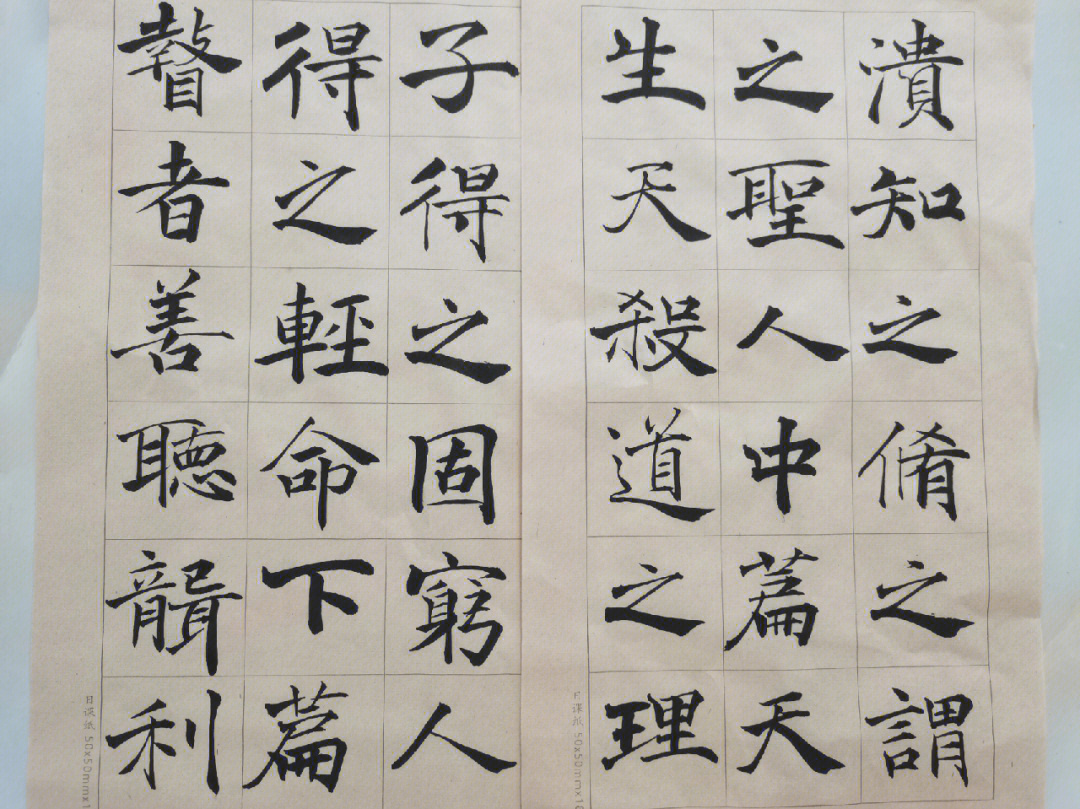 潰知之脩之謂
之聖人中篇天
生天殺道之理
日课纸 50x50mm
子得之固窮人
得之輕命下篇
瞽者善聽聾利
日课纸 50x50mm